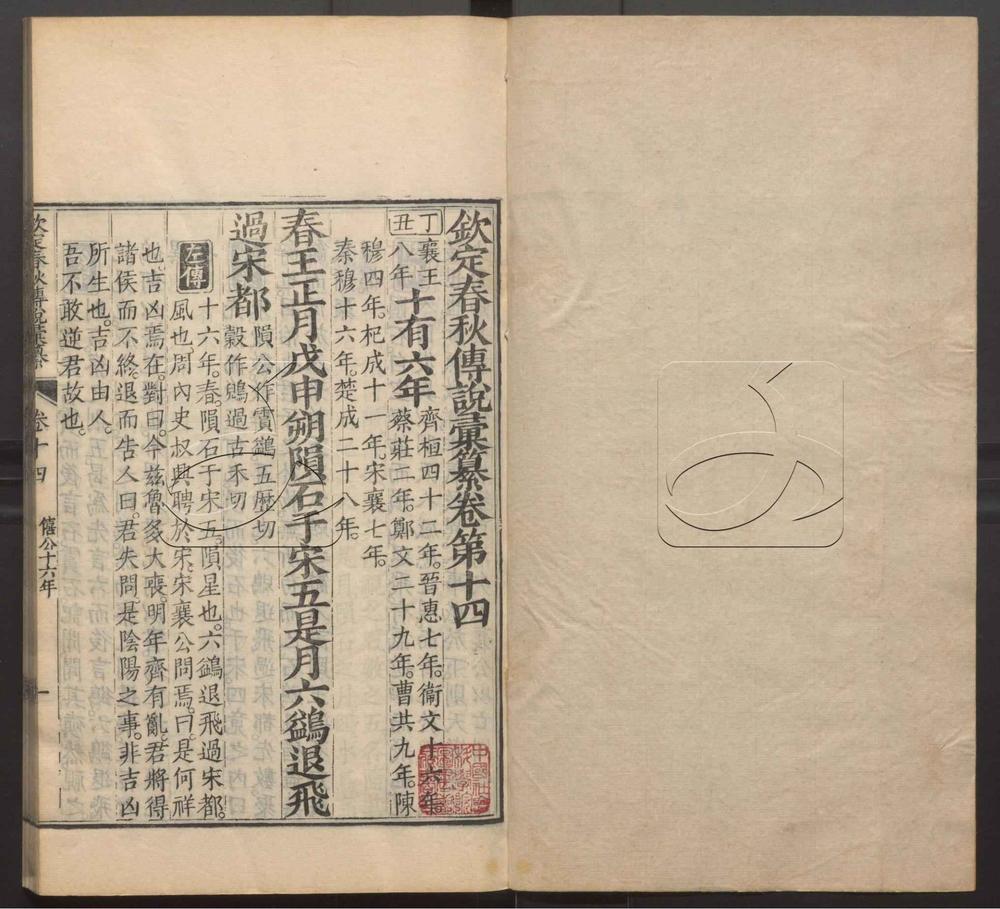 欽定春秋傳說彙纂卷第十四
丁丑
襄王八年
十有六年
齊桓四十二年。晉惠七年。衞文十六年。
蔡莊二年。鄭文二十九年。曹共九年。陳
穆四年。杞成十一年。宋襄七年。
秦穆十六年。楚成二十八年。
春王正月戊申朔隕石于宋五是月六鷁退飛
過宋都
隕公作霣鷁五歷切
穀作鶂過古禾切
左傳
十六年。春。隕石于宋五。隕星也。六鷁退飛過宋都。
風也。周內史叔興聘於宋。宋襄公問焉。曰。是何祥
也。吉凶焉在。對曰。今茲魯多大喪。明年齊有亂。君將得
諸侯而不終。退而告人曰。君失問。是陰陽之事。非吉凶
所生也。吉凶由人。
吾不敢逆君故也。
欽定春秋傳說彙纂
卷十四
僖公十六年
一